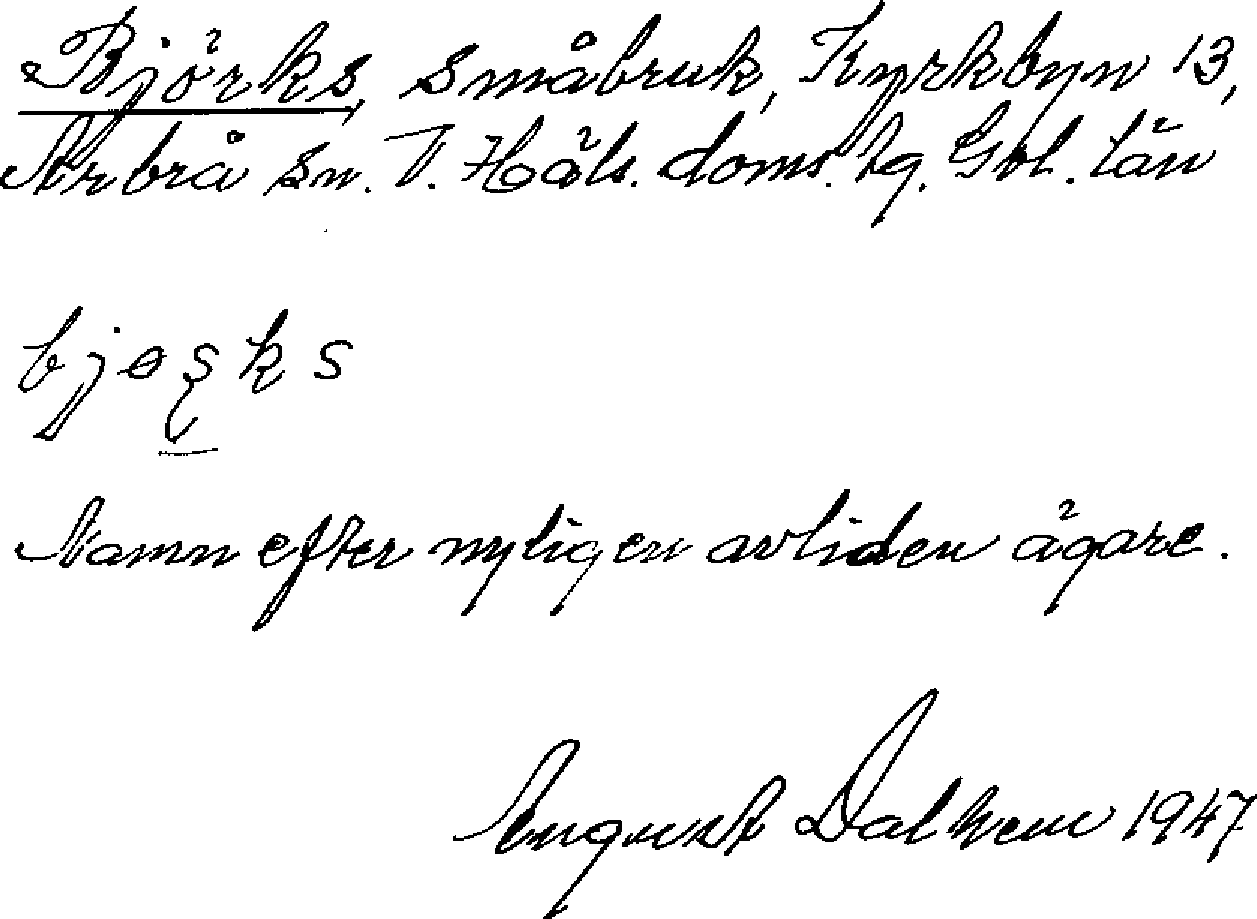 Björks, småbruk, Kyrkbyn 13,
Arbrå sn. V. Häls. doms. lg. Gvl. län
bjɵşks
Namn efter nyligen avliden ägare.
August Dalhem 1947